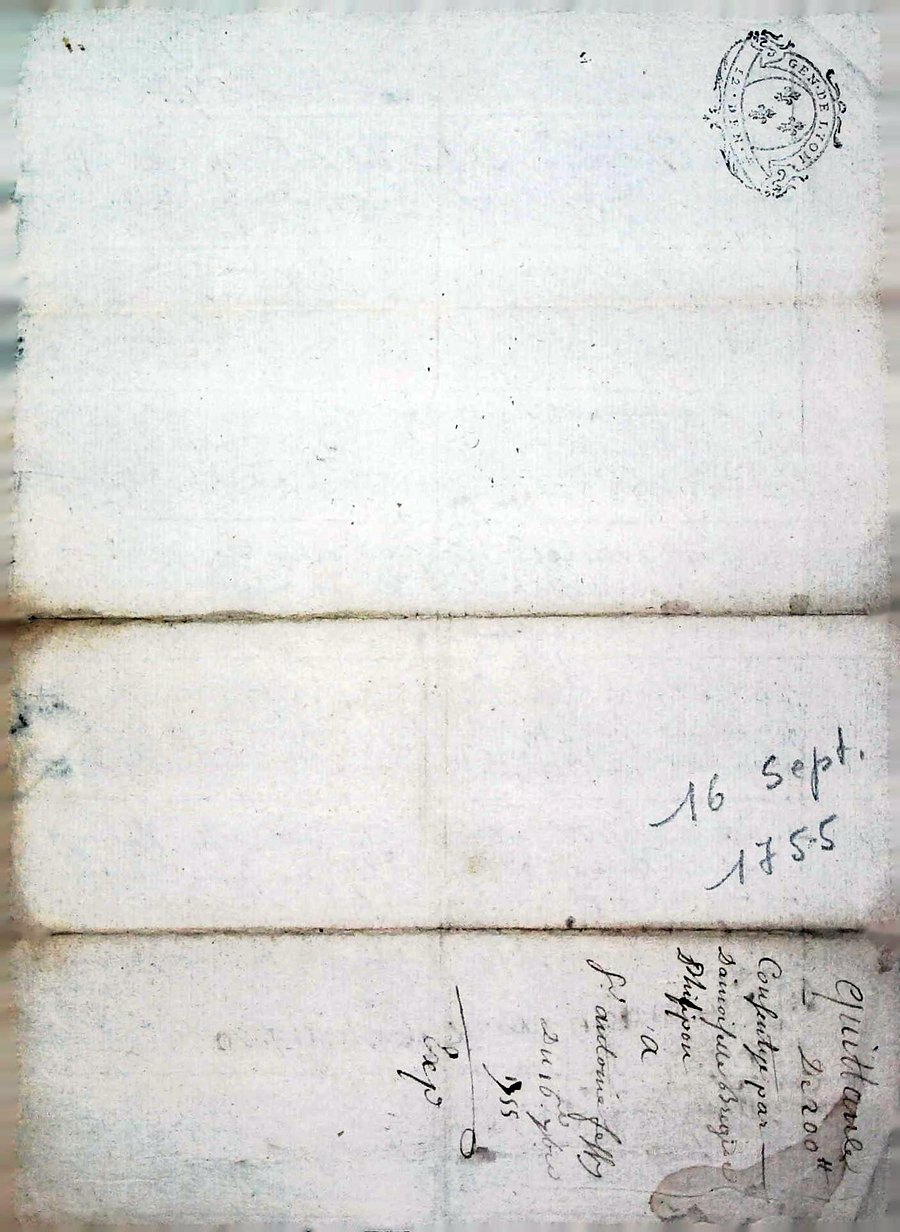 GEN. DE LYON
16 Sept.
1755
Quittance
De 200 ᵗᵗ
Consentye par
Damoiselle
Philipon
a
Sʳ antoine
Du 16 7bre
1755
Exp